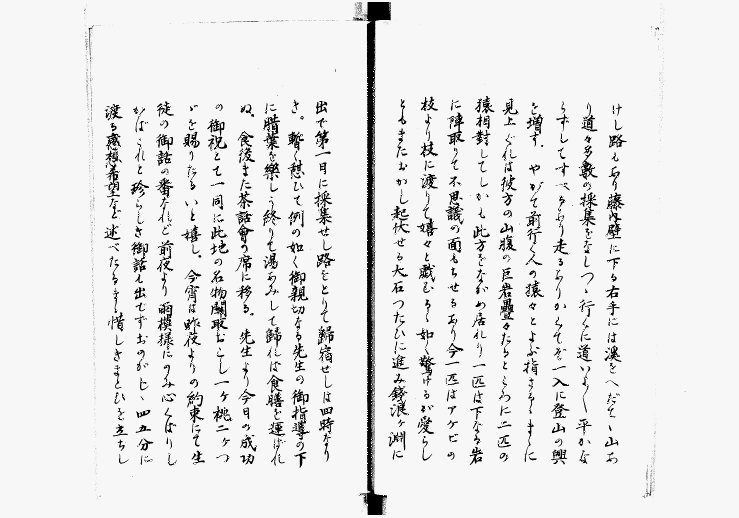 けし路もあり藤内壁に下る右手には溪をへだてゝ山あ
り道々多數の採集をなしつゝ行くに道いよゝ平かな
らずしてすべるあり走るありかくてぞ一入に登山の興
を増す、やがて前行く人の猿々とよぶ指さるゝまゝに
見上ぐれば彼方の山腹の巨岩疊々たるところに二匹の
猿相對してしかも此方をながめ居れり一匹は下なる岩
に陣取りて不思議の面もちせるあり今一匹はアケビの
枝より枝に渡りて嬉々と戲るゝ如し驚けるが愛らし
ともまたおかし起伏せる大石つたひに進み ヶ淵に
出で第一日に採集せし路をとりて歸宿せしは四時なり
き。暫く憩ひて例の如く御親切なる先生の御指導の下
に腊葉を樂しう終りて湯あみして歸れば食膳を運ばれ
ぬ。食後また茶話會の席に移る。先生より今日の成功
の御祝とて一同に此地の名物關取おこし一ヶ桃二ヶつ
ゝを賜りたるいと嬉し。今宵は昨夜よりの約束にて生
徒の御話の番なれど前夜より雨模樣にのみ心くばりし
かばこれと珍らしき御話も出でずおのがじゝ四五分に
渡る感想希望など述べたるまゝ惜しきまとひを立ちし